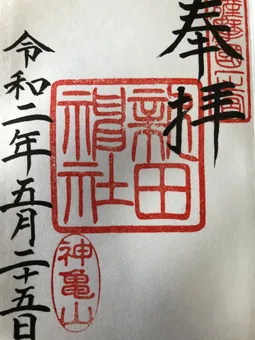 奉拝
新田
神社
神亀山
令和二年五月二十五日